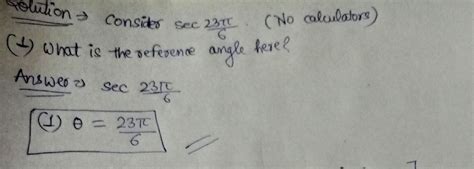 Solution ⇒ Consider sec 23π/6. (No calculators)
(1) What is the reference angle here?
Answer ⇒ sec 23π/6
(1) θ = 23π/6